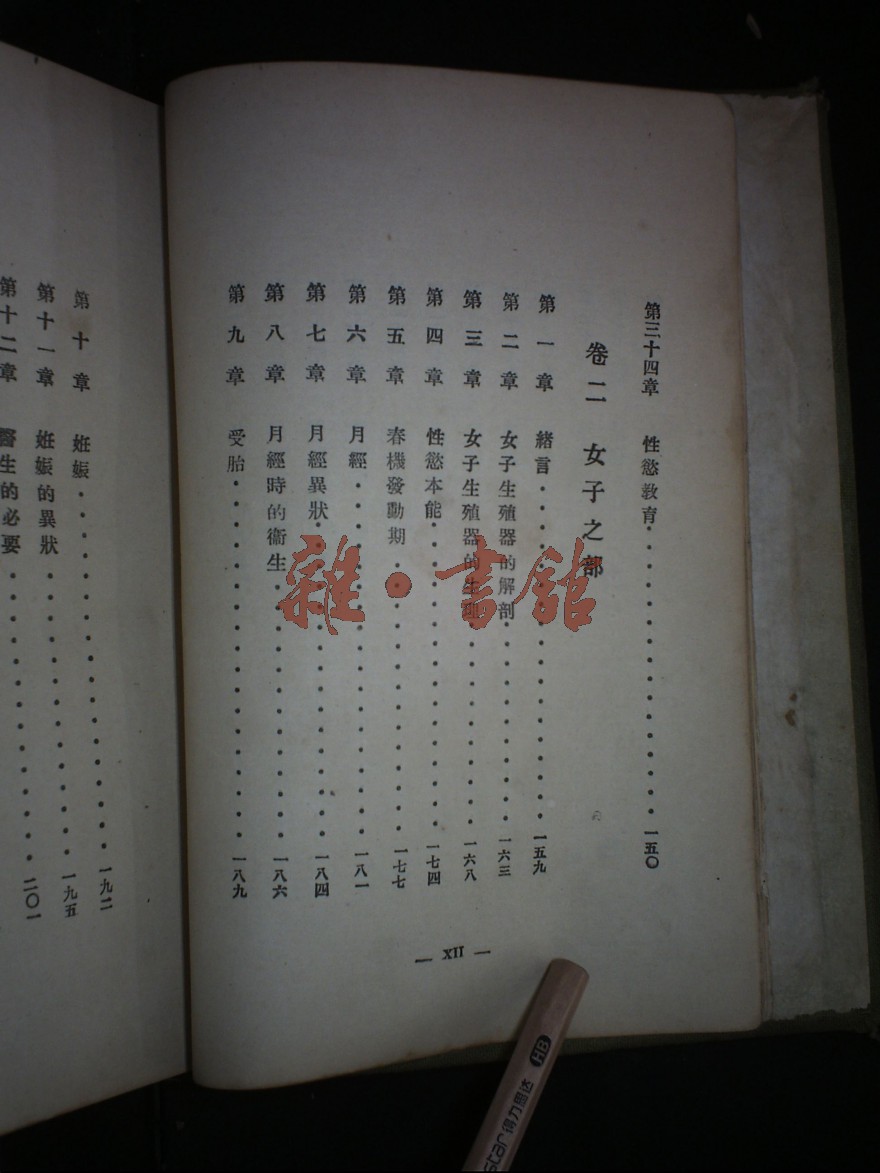 第三十四章 性慾教育・・・・・・・・・・・・・・・一五〇
卷二 女子之部
第一章 緒言・・・・・・・・・・・・・・・・・一五九
第二章 女子生殖器的解剖・・・・・・・・・・一六三
第三章 女子生殖器的生理・・・・・・・・・・一六八
第四章 性慾本能・・・・・・・・・・・・・・・一七四
第五章 春機發動期・・・・・・・・・・・・・・一七七
第六章 月經・・・・・・・・・・・・・・・・・一八一
第七章 月經異狀・・・・・・・・・・・・・・・一八四
第八章 月經時的衞生・・・・・・・・・・・・・一八六
第九章 受胎・・・・・・・・・・・・・・・・・一八九
— XII —
第十章 姙娠・・・・・・・・・・・・・・・・・一九二
第十一章 姙娠的異狀・・・・・・・・・・・・・一九五
第十二章 醫生的必要・・・・・・・・・・・・・二〇一
雜・書舘
star 得力思达 HB